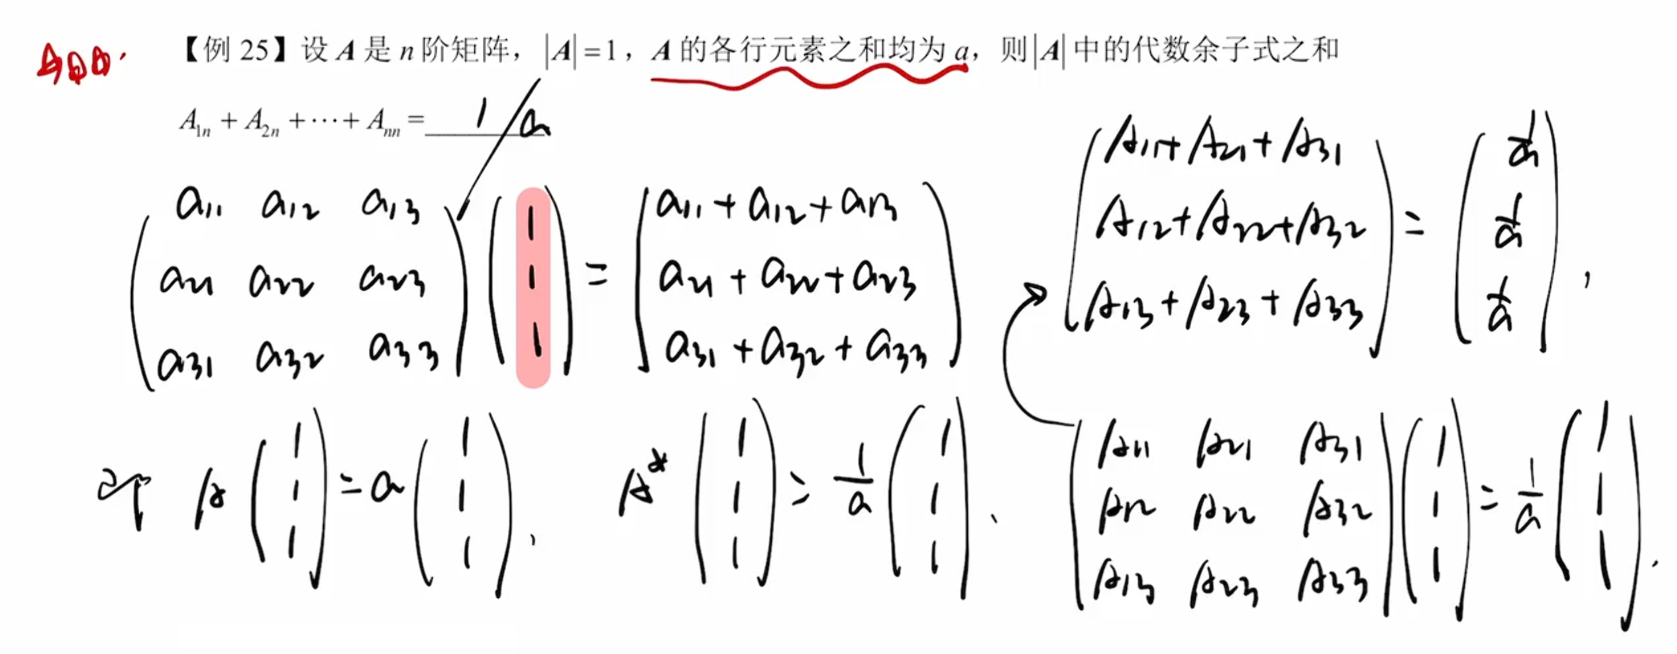 【例 25】设 A 是 n 阶矩阵，|A|=1，A 的各行元素之和均为 a，则|A|中的代数余子式之和
A₁ₙ + A₂ₙ + ⋯ + Aₙₙ = 1/a
a₁₁ a₁₂ a₁₃
a₂₁ a₂₂ a₂₃
a₃₁ a₃₂ a₃₃
1
1
1
=
a₁₁ + a₁₂ + a₁₃
a₂₁ + a₂₂ + a₂₃
a₃₁ + a₃₂ + a₃₃
A₁₁ + A₂₁ + A₃₁
A₁₂ + A₂₂ + A₃₂
A₁₃ + A₂₃ + A₃₃
=
1/a
1/a
1/a
,
A (1 1 1) = a (1 1 1) ,
A* (1 1 1) = 1/a (1 1 1) 、
A₁₁ A₂₁ A₃₁
A₁₂ A₂₂ A₃₂
A₁₃ A₂₃ A₃₃
(1 1 1) = 1/a (1 1 1) .